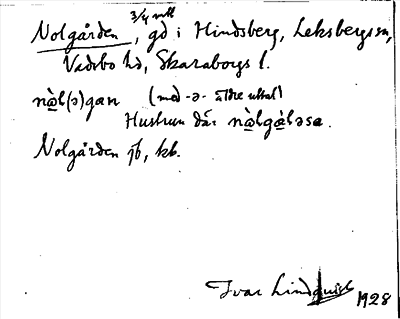 3/4 mtl
Nolgården, gd i Hindsberg, Leksbergs sn,
Vadsbo hd, Skaraborgs l.
nòl(ə)gan (med -ə- äldre uttal)
Hustrun där nòlgàləsa.
Nolgården jb, kb.
Ivar Lindquist
1928